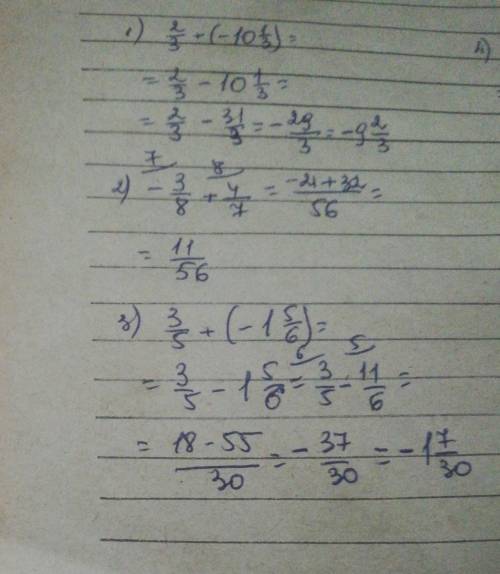 1) 2/3 + (-10 1/3) =
= 2/3 - 10 1/3 =
= 2/3 - 31/3 = - 29/3 = -9 2/3
7 8
2) - 3/8 + 4/7 = -21+32/56 =
= 11/56
3) 3/5 + (-1 5/6) =
6 5
= 3/5 - 1 5/6 = 3/5 - 11/6 =
= 18-55/30 = - 37/30 = -1 7/30